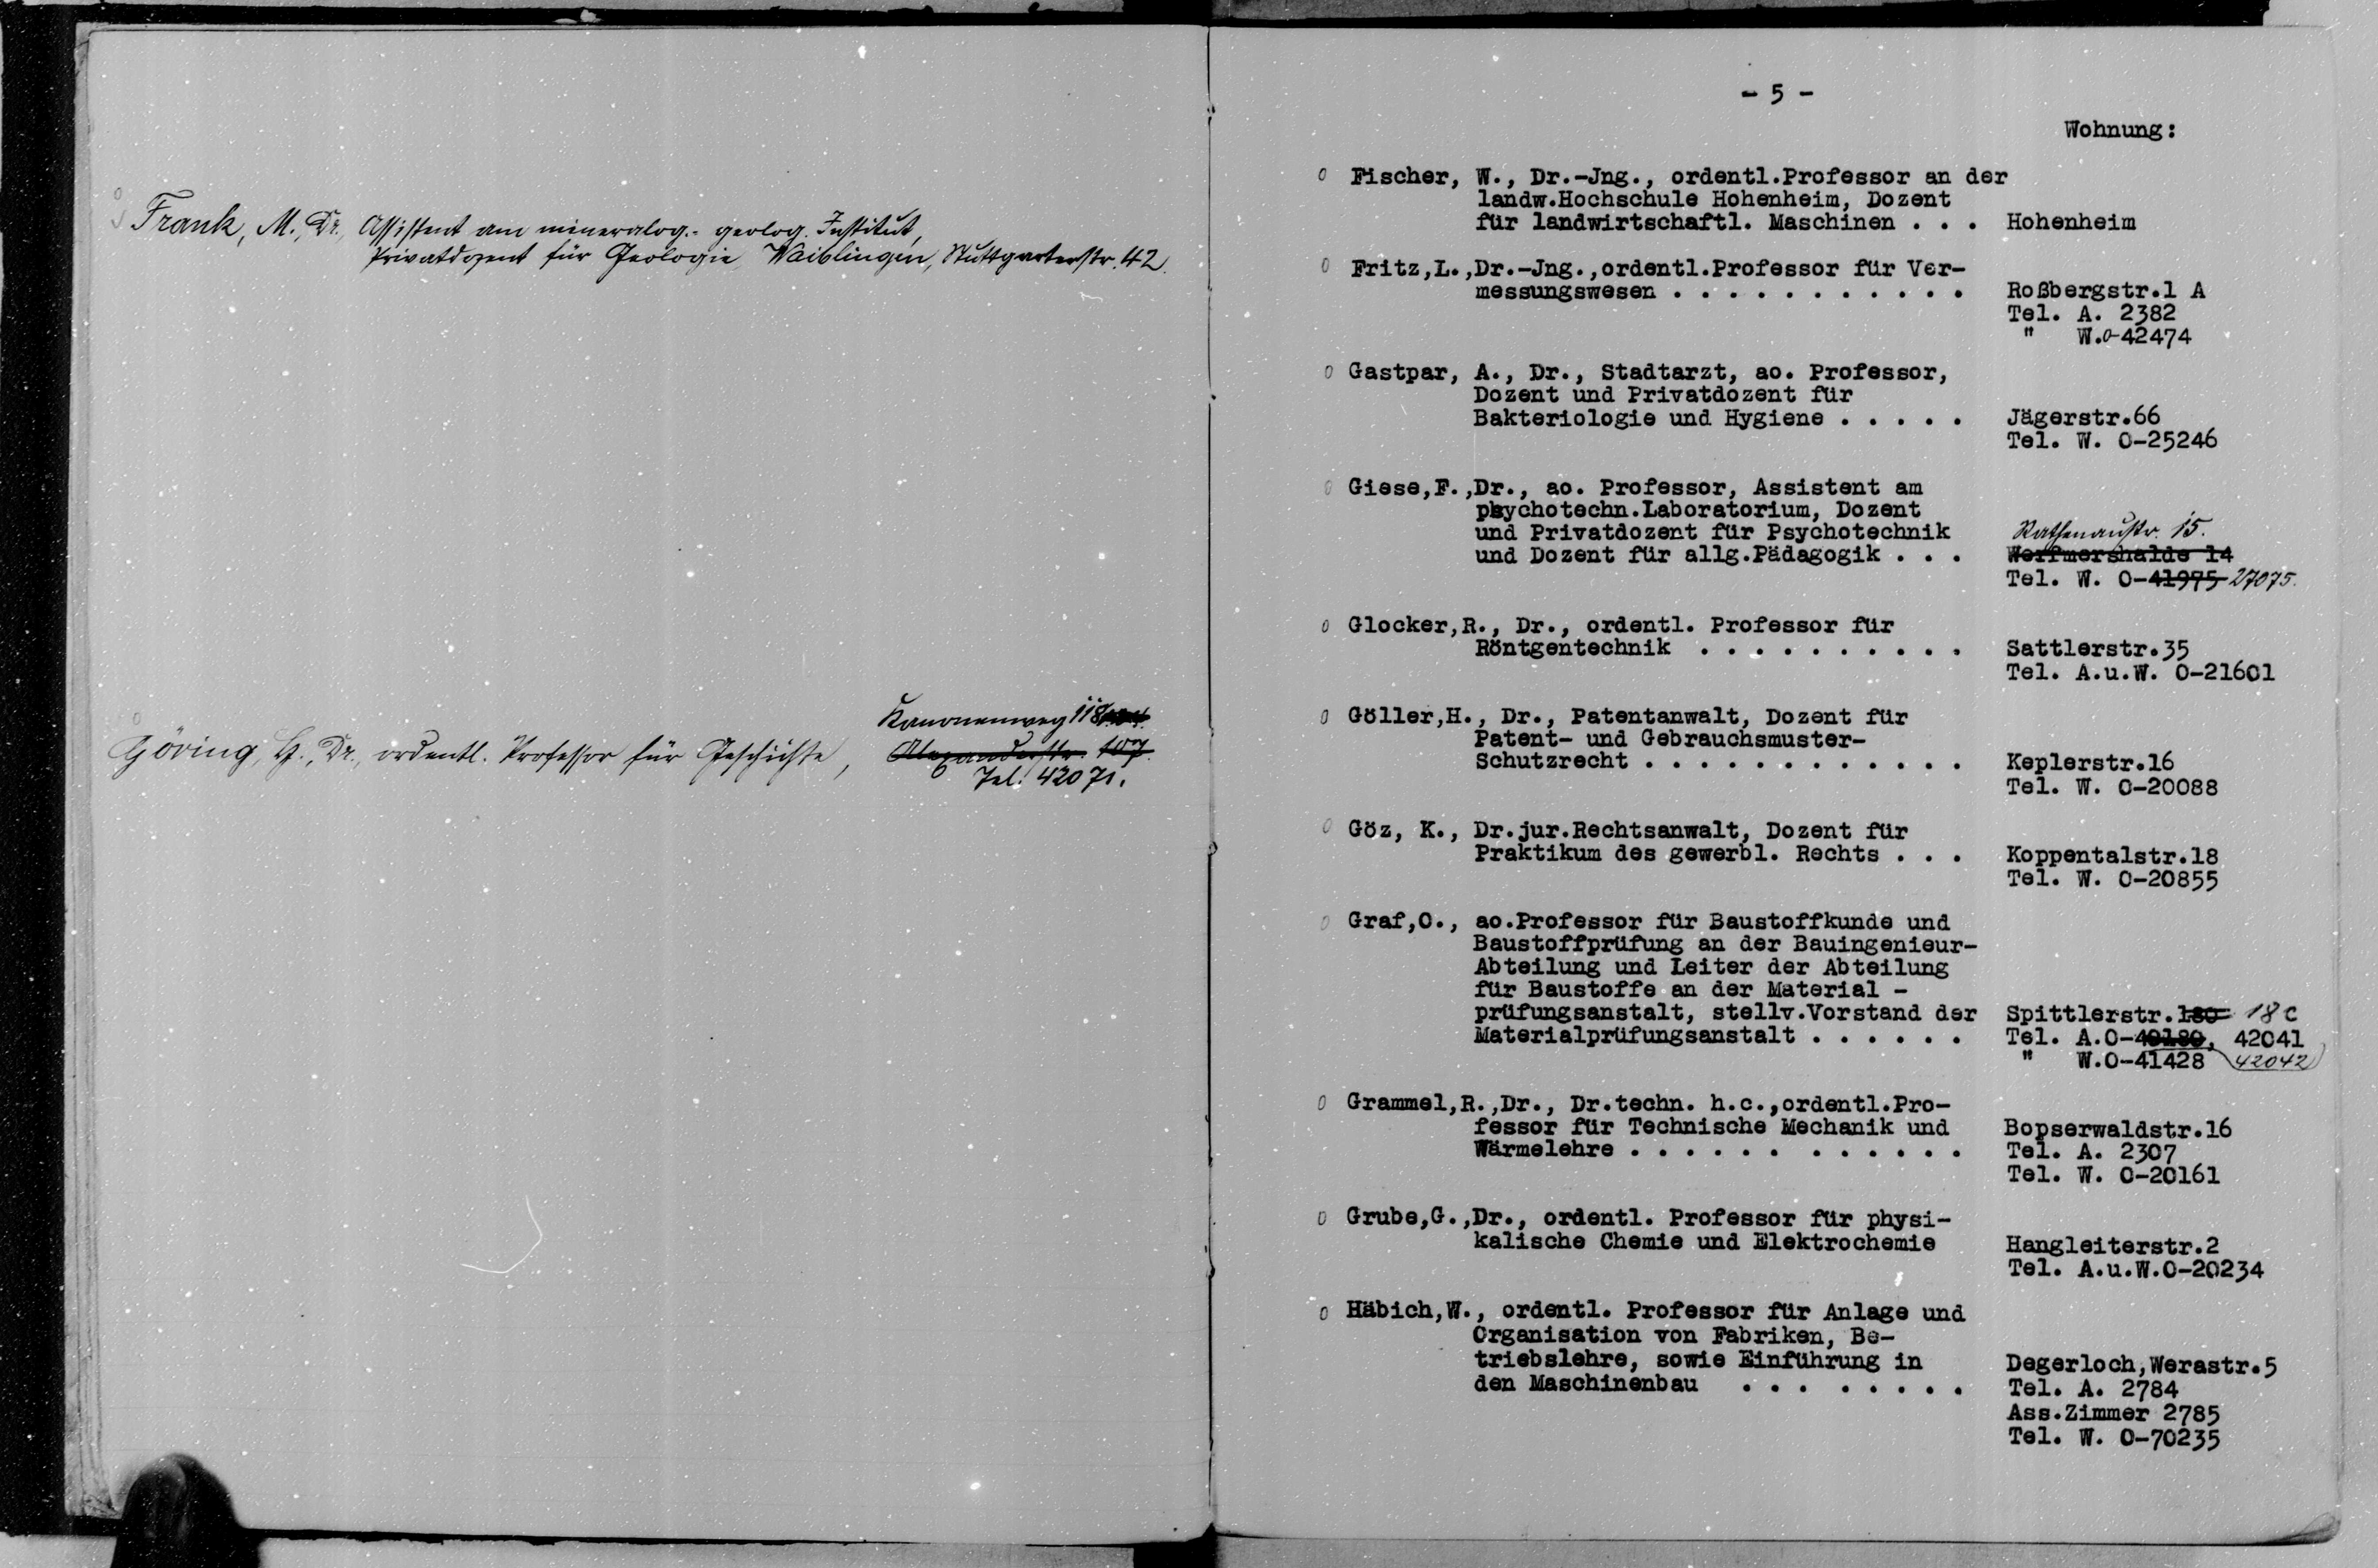 Frank, M., Dr., Assistent am mineralog.- geolog. Institut,
Privatdozent für Geologie, Waiblingen, Stuttgarterstr. 42.
Kanonenweg 118
Göring, H., Dr., ordentl. Professor für Geschichte, Alexanderstr. 107.
Tel. 42071.
- 5 -
Wohnung:
Fischer, W., Dr.-Jng., ordentl.Professor an der
landw.Hochschule Hohenheim, Dozent
für landwirtschaftl. Maschinen . . . Hohenheim
Fritz,L.,Dr.-Jng.,ordentl.Professor für Ver-
messungswesen . . . . . . . . . . . Roßbergstr.1 A
Tel. A. 2382
" W.0-42474
Gastpar, A., Dr., Stadtarzt, ao. Professor,
Dozent und Privatdozent für
Bakteriologie und Hygiene . . . . . Jägerstr.66
Tel. W. 0-25246
Giese,F.,Dr., ao. Professor, Assistent am
psychotechn.Laboratorium, Dozent
und Privatdozent für Psychotechnik Rathenaustr. 15.
und Dozent für allg.Pädagogik . . . Werfmershalde 14
Tel. W. 0-41975 27075.
Glocker,R., Dr., ordentl. Professor für
Röntgentechnik . . . . . . . . . . Sattlerstr.35
Tel. A.u.W. 0-21601
Göller,H., Dr., Patentanwalt, Dozent für
Patent- und Gebrauchsmuster-
Schutzrecht . . . . . . . . . . . . Keplerstr.16
Tel. W. 0-20088
Göz, K., Dr.jur.Rechtsanwalt, Dozent für
Praktikum des gewerbl. Rechts . . . Koppentalstr.18
Tel. W. 0-20855
Graf,O., ao.Professor für Baustoffkunde und
Baustoffprüfung an der Bauingenieur-
Abteilung und Leiter der Abteilung
für Baustoffe an der Material -
prüfungsanstalt, stellv.Vorstand der Spittlerstr.180 18 C
Materialprüfungsanstalt . . . . . . Tel. A.0-40180, 42041
" W.0-41428 42042
Grammel,R.,Dr., Dr.techn. h.c.,ordentl.Pro-
fessor für Technische Mechanik und Bopserwaldstr.16
Wärmelehre . . . . . . . . . . . . Tel. A. 2307
Tel. W. 0-20161
Grube,G.,Dr., ordentl. Professor für physi-
kalische Chemie und Elektrochemie Hangleiterstr.2
Tel. A.u.W.0-20234
Häbich,W., ordentl. Professor für Anlage und
Organisation von Fabriken, Be-
triebslehre, sowie Einführung in Degerloch,Werastr.5
den Maschinenbau . . . . . . . . Tel. A. 2784
Ass.Zimmer 2785
Tel. W. 0-70235